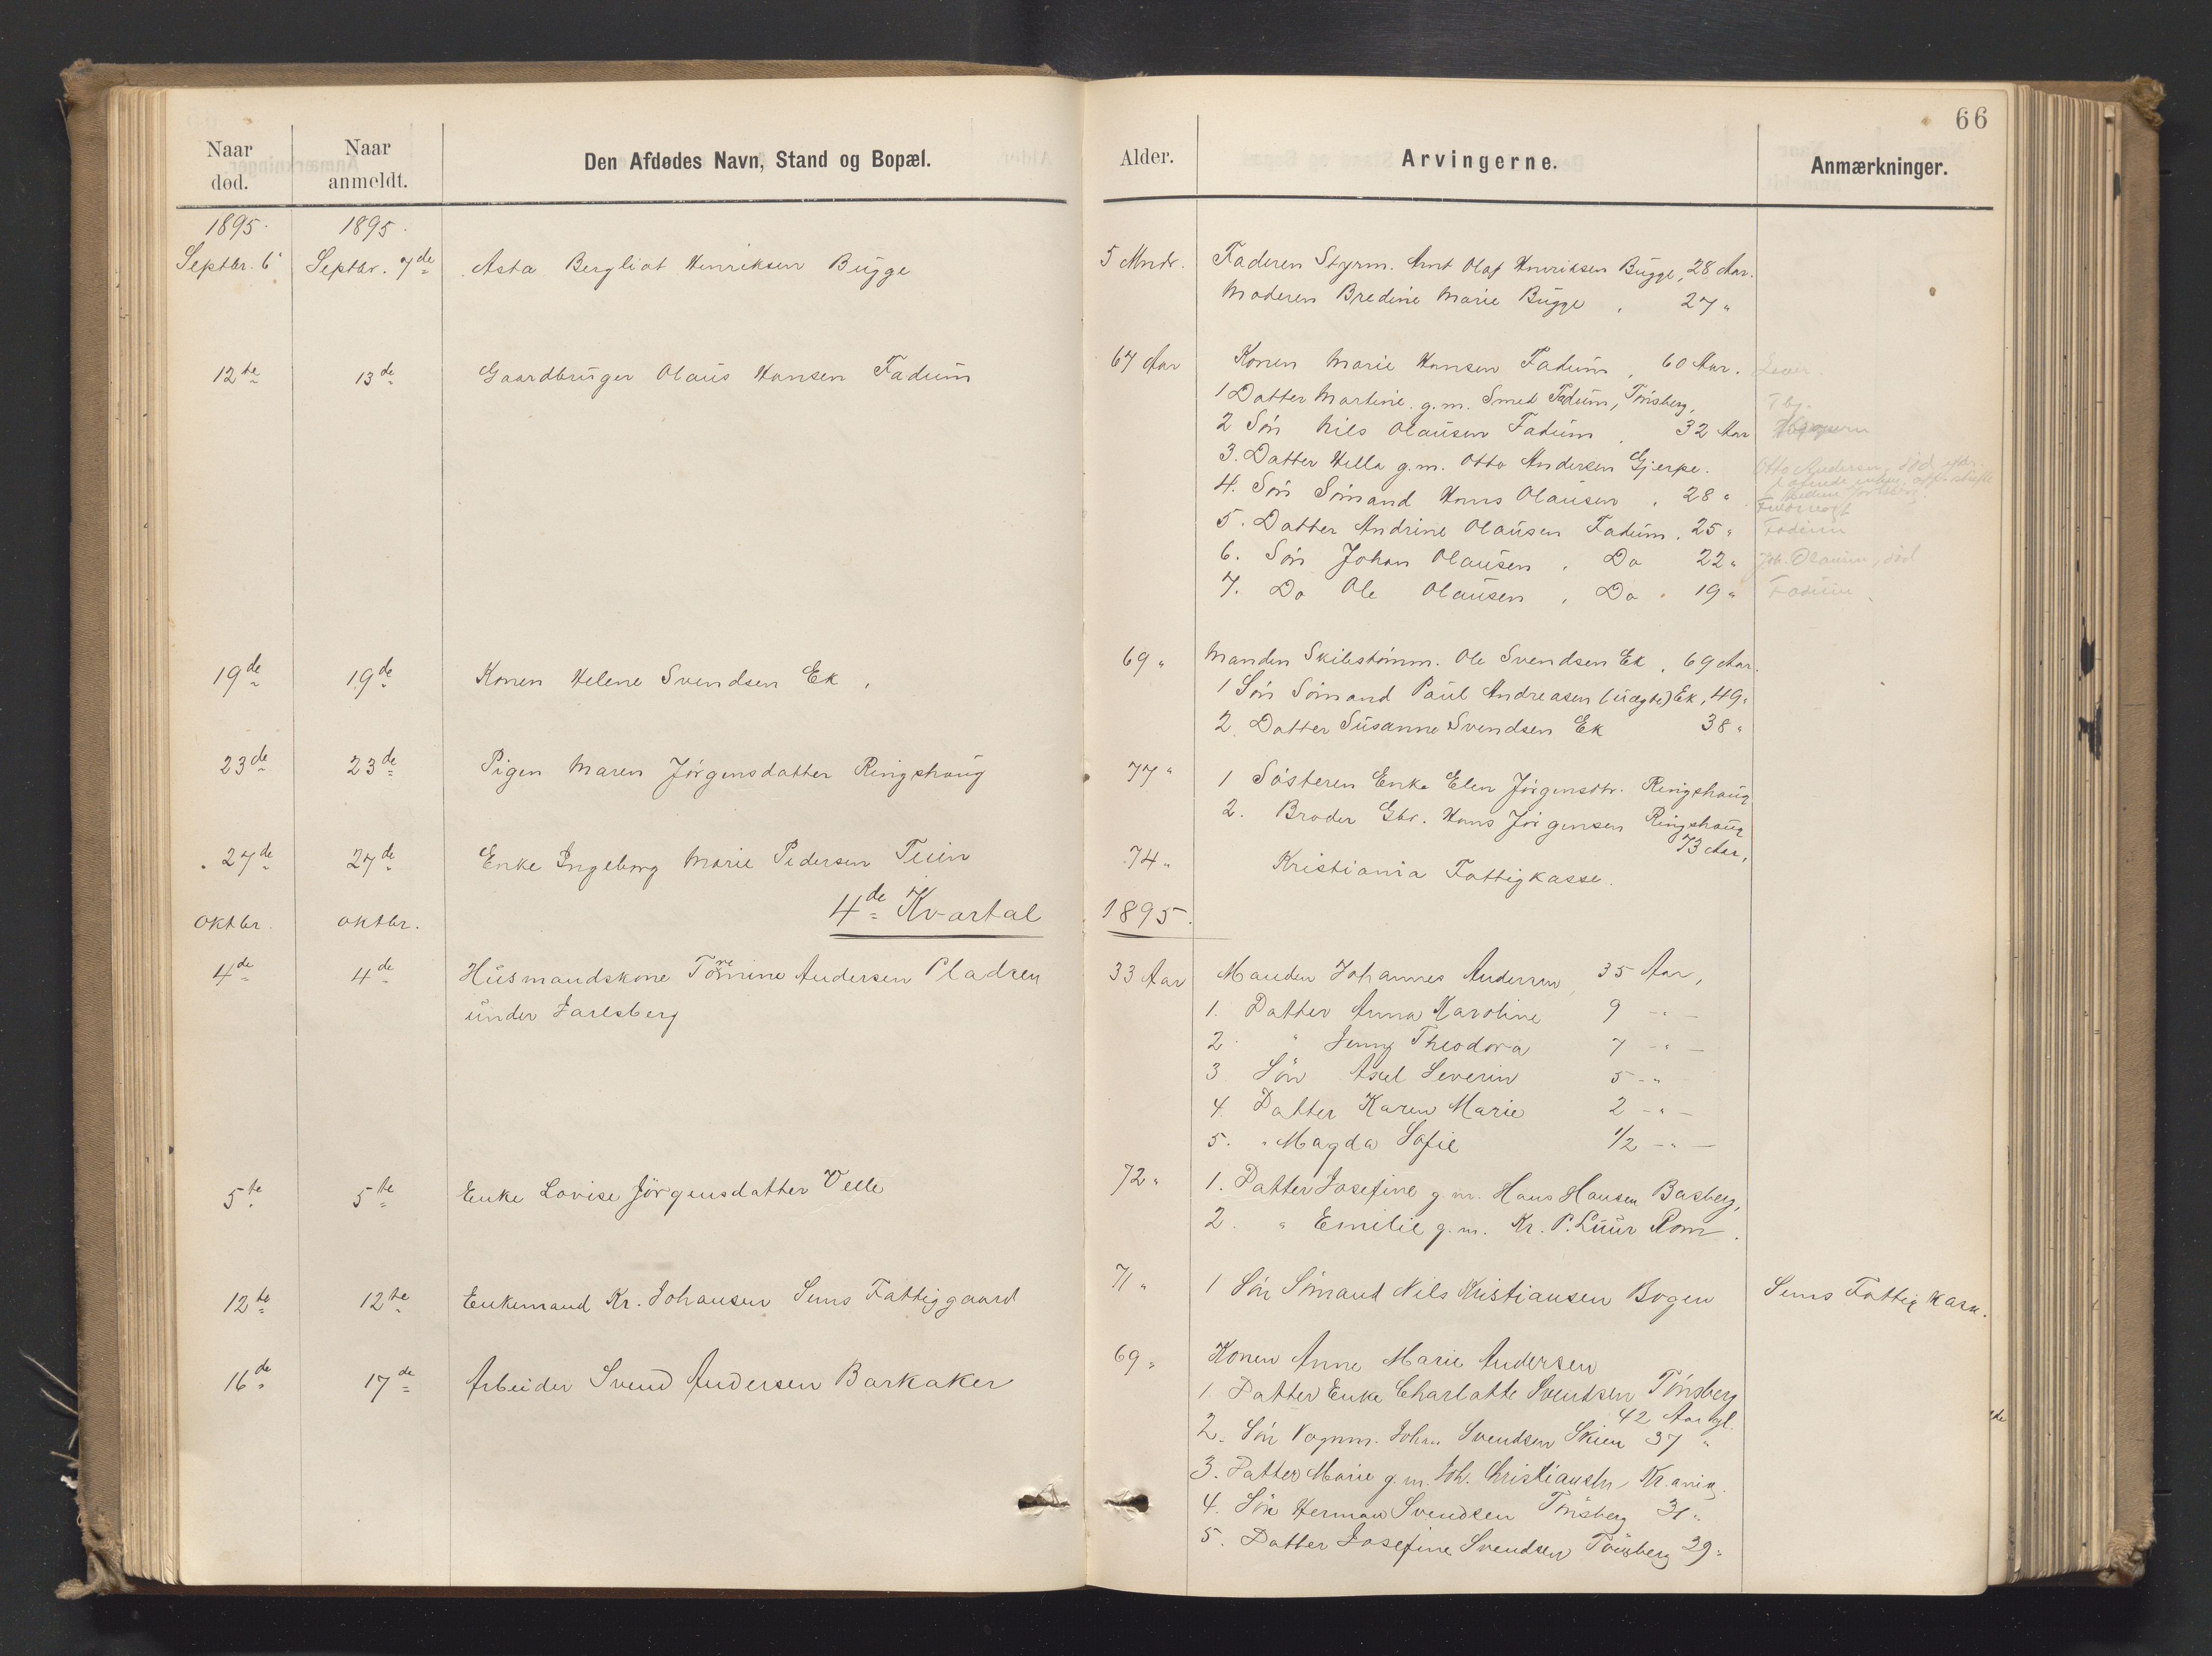 66
Naar død.
Naar anmeldt.
Den Afdødes Navn, Stand og Bopæl.
Alder.
Arvingerne.
Anmærkninger.
1895.
1895.
Septbr. 6
Septbr. 7de
Asta Bergliot Henriksen Bugge
5 Mndr.
Faderen Styrm. Arnt Olaf Henriksen Bugge, 28 Aar.
Moderen Bredine Marie Bugge, 27 "
12te
13de
Gaardbruger Olaus Hansen Fadum
67 Aar
Konen Marie Hansen Fadum, 60 Aar.
1 Datter Martine g.m. Smed Fadum, Tönsberg,
Tbg.
2 Sön Nils Olausen Fadum, 32 Aar
3. Datter Hella g.m. Otto Andersen Gjerpe.
Otto Andersen, död
4. Sön Sömand Hans Olausen, 28 "
5. Datter Andrine Olausen Fadum, 25 "
Fadum
6. Sön Johan Olausen, Do 22 "
Joh. Olausen, död
7. Do Ole Olausen, Do 19 "
Fadum
19de
19de
Konen Helene Svendsen Ek,
69 "
Manden Skibstömm. Ole Svendsen Ek, 69 Aar.
1 Sön Sömand Paul Andreasen (uægte) Ek, 49 "
2. Datter Susanne Svendsen Ek 38 "
23de
23de
Pigen Maren Jörgensdatter Ringshaug
77 "
1 Sösteren Enke Elen Jörgensdtr. Ringshaug
2. Broder Gbr. Hans Jörgensen Ringshaug
73 Aar,
27de
27de
Enke Ingeborg Marie Pedersen Teien
74 "
Kristiania Fattigkasse.
4de Kvartal 1895.
Oktbr.
Oktbr.
4de
4de
Husmandskone Tomine Andersen Pladsen
under Jarlsberg
33 Aar
Manden Johannes Andersen, 35 Aar,
1. Datter Anna Karoline 9 - " -
2. " Jenny Theodora 7 - " -
3 Sön Axel Severin 5 - "
4. Datter Karen Marie 2 - " -
5. " Magda Sofie 1/2 - " -
5te
5te
Enke Lovise Jörgensdatter Velle
72 "
1. Datter Josefine g.m. Hans Hansen Basberg,
2. " Emilie g.m. Kr. P. Luur Rom.
12te
12te
Enkemand Kr. Johansen Sems Fattiggaard
71 "
1 Sön Sömand Nils Kristiansen Bogen
Sems Fattig Kasse.
16de
17de
Arbeider Svend Andersen Barkaker
69 "
Konen Anne Marie Andersen
1. Datter Enke Charlotte Svendsen Tönsberg
42 Aar gl.
2. Sön Vognm. Johan Svendsen Skien 37 "
3. Datter Marie g.m. Joh. Christiansen, Kr.ania.
4. Sön Herman Svendsen Tönsberg 31 "
5. Datter Josefine Svendsen Tönsberg 29 "